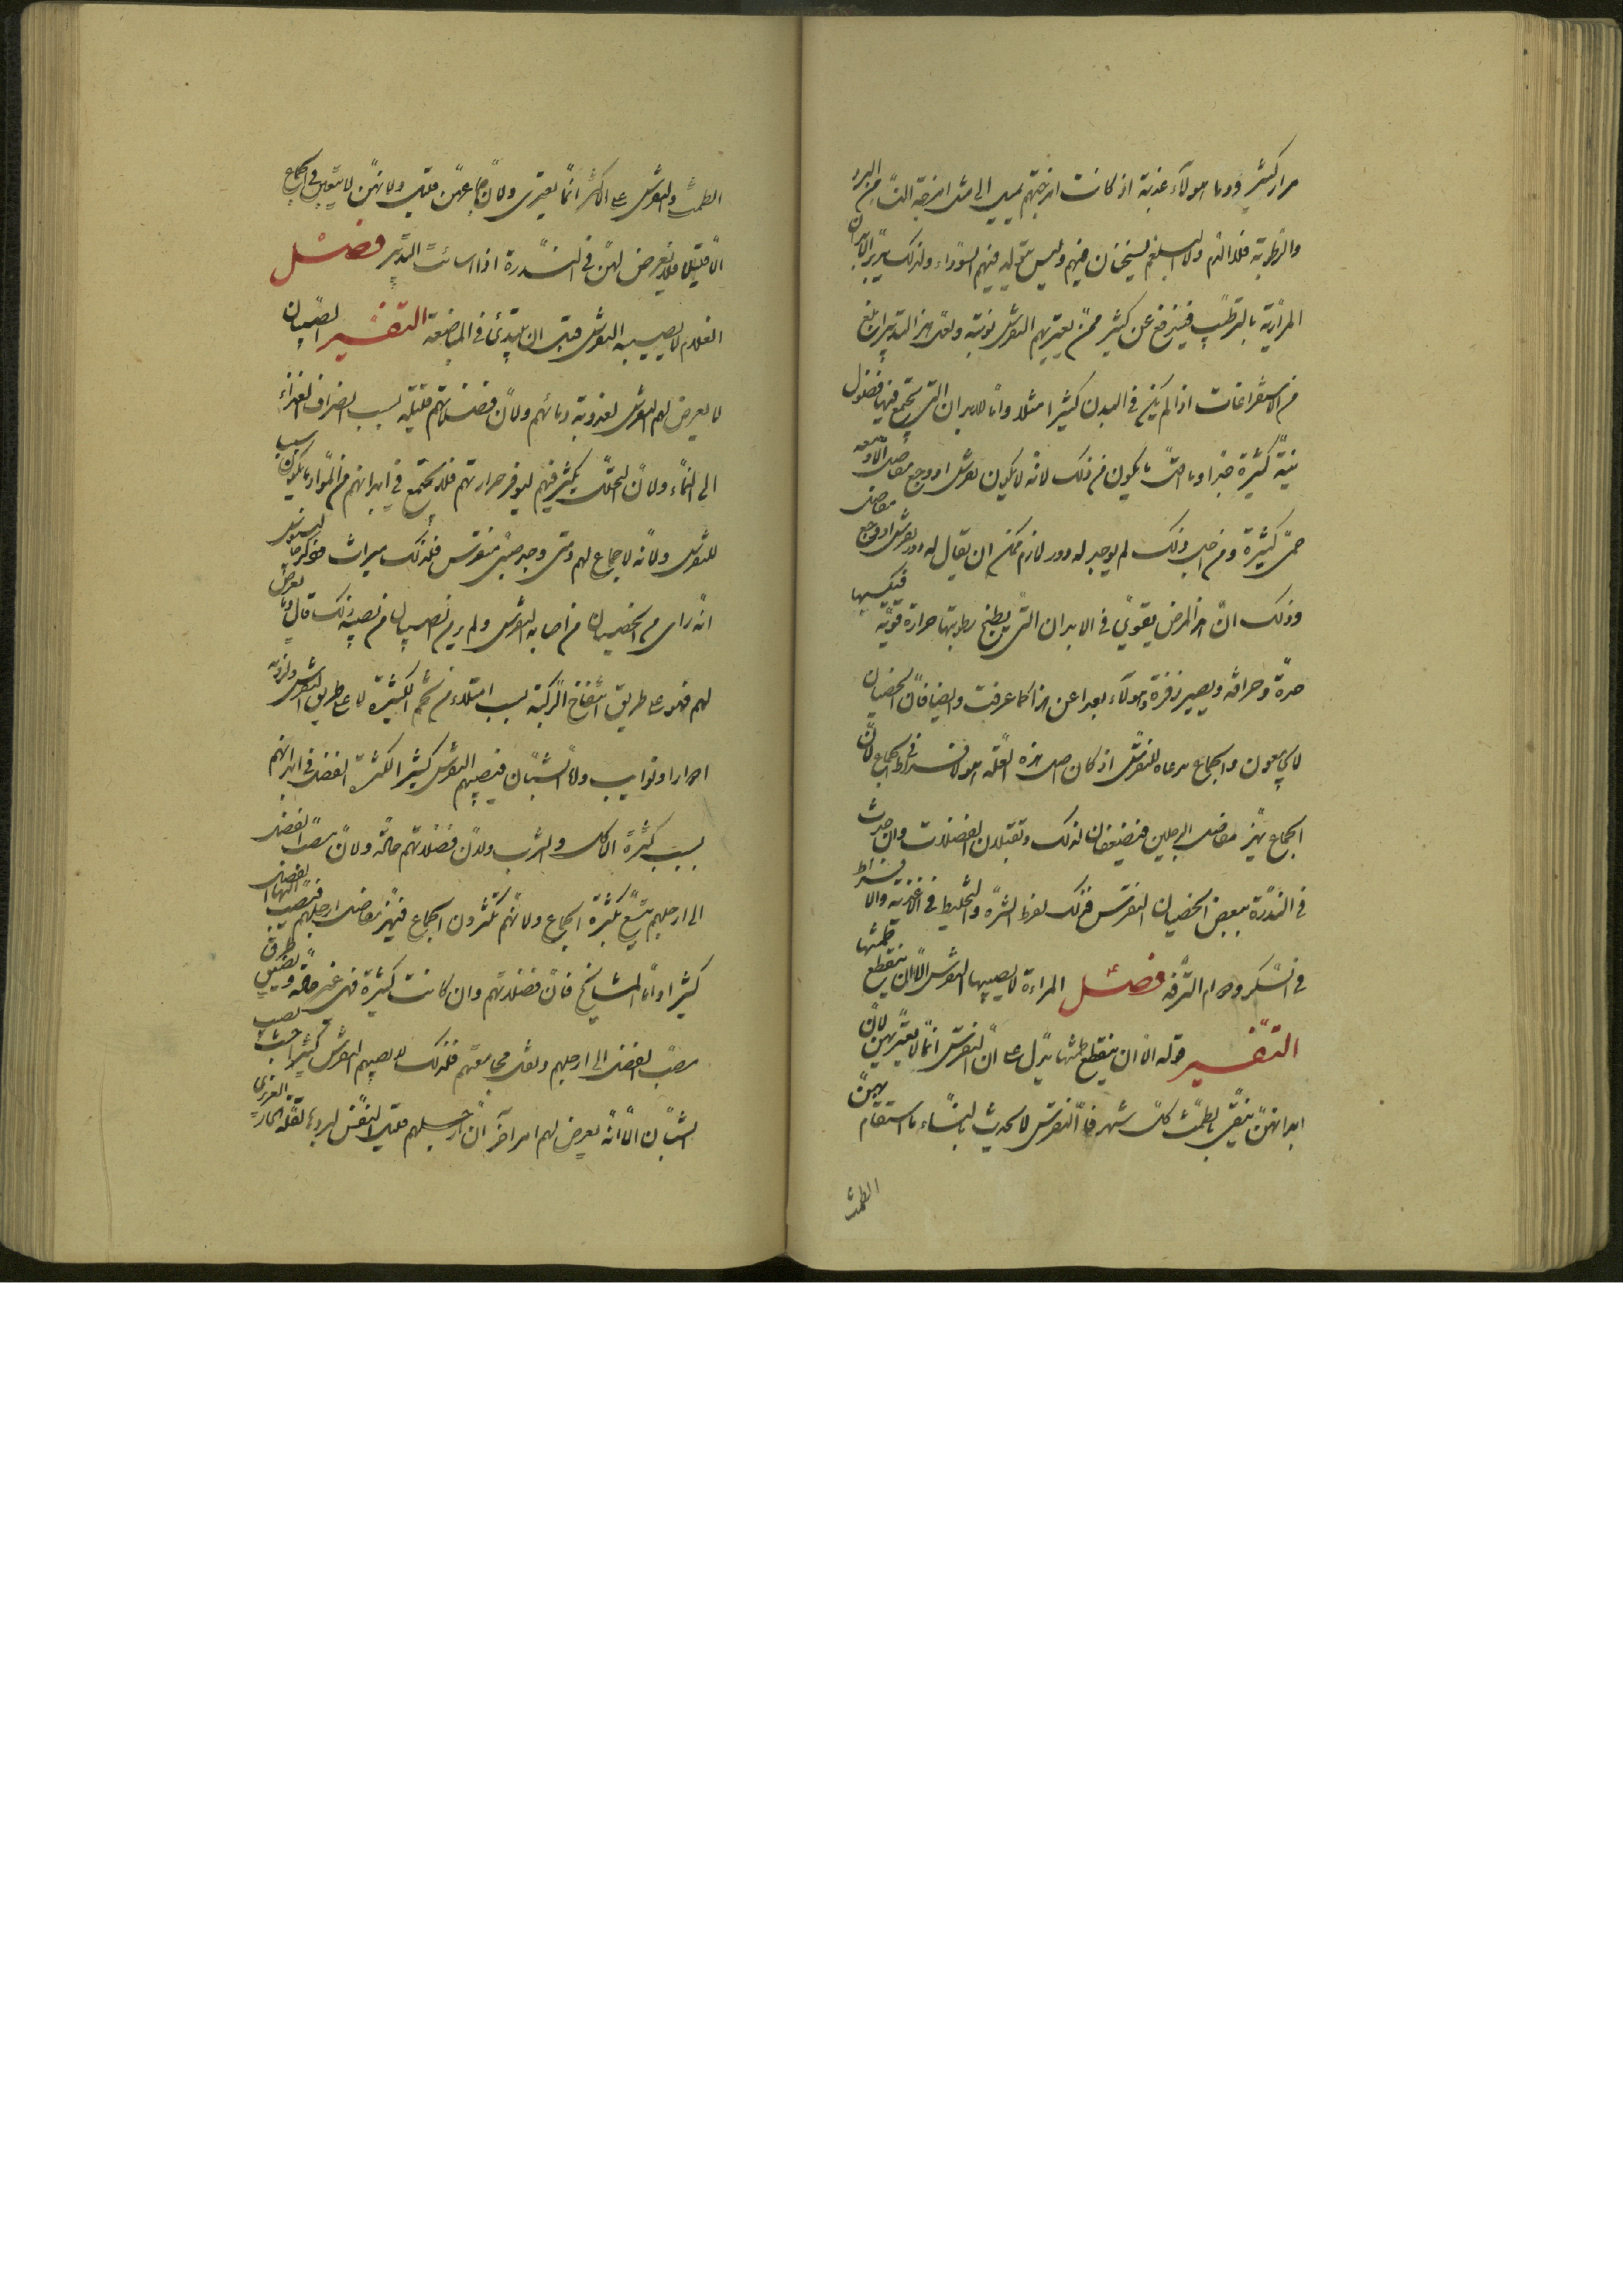 مرار كثير ودما هولآء عذبة اذ كانت امزجتهم تميل الى مثل امزجة النسا من البرد
والرطوبة فلا الدم ولا البلغم يسخنان فيهم وليس يتولد فيهم السوداء ولذلك تدبير الابدان
المرارية بالترطيب فيندفع عن كثير ممن يعتريهم النقرس نوبته ولعل هذا التدبير انفع
من الاستفراغات اذا لم يكن في البدن كثير امتلاء واما الابدان التي تجتمع فيها فضول
نية كثيرة جدا وما اقل ما يكون من ذلك لانه لا يكون نقرس او وجع مفاصل الا ومعه
حمى كثيرة ومن اجل ذلك لم يوجد له دور لازم يمكن ان يقال له دور نقرس او وجع مفاصل
وذلك ان هذا المرض يقوى في الابدان التي يطبخ رطوبتها حرارة قوية فيكسبها
حدة وحرافة ويصير زفرة وهولآء بعدا عن هذا كما عرفت وايضا فان الخصيان
لا يجامعون والجماع مدعاة للنقرس اذ كان اصل هذه العلة هو الافراط في الجماع لان
الجماع يهز مفاصل الرجلين فتضعفان لذلك وتقبلان الفضلات وان حدث
في الندرة ببعض الخصيان النقرس فذلك لفرط الشره والتخليط في الاغذية والافراط
في السكر ودوام الترفه فصل المراءة لا يصيبها النقرس الا ان ينقطع طمثها
التفسير قوله الا ان ينقطع طمثها يدل على ان النقرس انما لا يعتريهن لان
ابدانهن تنقى بالطمث كل شهر فان النقرس لا يحدث بالنساء ما استقام بهن
الطمث
الطمث والنقرس على الاكثر انما يعترى ولان جماعهن قليل ولانهن لا يتعبن في الجماع
الا قليلا فلا يعرض لهن في الندرة اذا اسائت التدبير فصل
الغلام لا يصيبه النقرس قبل ان يبتدئ في المباضعة التفسير الصبيان
لا يعرض لهم النقرس لعذوبة دمائهم ولان فضلاتهم قليلة بسبب انصراف الغذاء
الى النماء ولان التحلل يكثر فيهم لتوفر حرارتهم فلا تجتمع في ابدانهم من المواد ما يكون سبب
للنقرس ولانه لا جماع لهم ومتى وجد صبي منقرس فلذلك ميراث
انه راى من الخصيان من اصابه النقرس ولم ير من الصبيان من نصيبه ذلك قال وما يعرض
لهم فهو على طريق انتفاخ الركبة بسبب امتلاء من تخم الكثيرة لا على طريق النقرس
ادوارا ونوايب ولان الشبان فيصيبهم النقرس كثيرا لكثرة الفضل في ابدانهم
بسبب كثرة الاكل والشرب ولان فضلاتهم حادة ولان مصب الفضل
الى ارجلهم يتسع بكثرة الجماع ولانهم يكثرون الجماع فيهز مفاصل ارجلهم فينصب اليها الفضل
كثيرا واما المشايخ فان فضلاتهم وان كانت كثيرة فهى غير حادة ويضيق طرق
مصب الفضل الى ارجلهم ولقلة مجامعتهم فلذلك لا يصيبهم النقرس كثيرا
الشبان الا انه يعرض لهم امر آخر ان ارجلهم قليلة التنفس لبردها لقلة الحار الغريزى